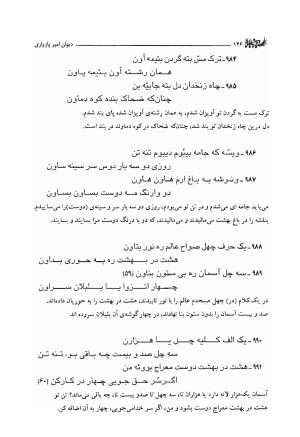 ۱۴۶ دیوان امیر پازواری
۹۸۴- ترک مسّ بته گردن بئیمه آون
همان رشته آون بئیمه پاون
۹۸۵- چاه زنخدان دل بته جاییّه بن
چنان‌که ضحاک بنده کوه دماون
ترک مست به گردن تو آویزان شدم، به همان رشته‌ی آویزان شده‌ی پای بند شدم.
دل در بن چاه زنخدان تو بند شد، چنان‌که ضحاک در کوه دماوند در بند است.
۹۸۶- ویسّه که جامه بیّوم دییوم تنه تن
روزی دو سه بار دوس سر سینه ساون
۹۸۷- ونوشه به باغ ارم هاون هاون
دو وارنگ مه دوست بساون بساون
می‌باید جامه ای می‌شدم و در تن تو می‌بودم، روزی دو سه بار سر و سینه‌ی (دوست) را می‌ساییدم.
بنفشه را در باغ بهشت می‌مالیدند و می‌مالیدند، که دو بادرنگ دوست مرا بسایند و بسایند.
۹۸۸- یک حرف چهل صواح عالم ره نور بتاون
هشت در بهشت ره به حوری بداون
۹۸۹- سه چل آسمان ره بی ستون بناون (۵۹)
چهار انزوا یا بلبلان سراون
در یک کلام (در) چهل صبحدم عالم را با نور تابیدند، هشت در بهشت را به حوریان داده‌اند.
صد و بیست آسمان را بدون ستون بنا نهادند، در چهار گوشه‌ی آن بلبلان سروده اند
۹۹۰- یک الف کلیه چل یا هزارن
سه چل صد و بیست چه باقی بو، تنه تن
۹۹۱- هشت در بهشت دوست معراج بوونه من
اگر سرّ حق جویی چهار در کارکن (۶۰)
آسمان یک‌هزار لانه دارد یا هزاران تا، سه چهل تا صدو بیست تا، چه باقی می‌ماند؟ تن تو
هشت در بهشت معراج دوست بشود و من، اگر سر خدا می‌جویی، چهار به آن اضافه کن.